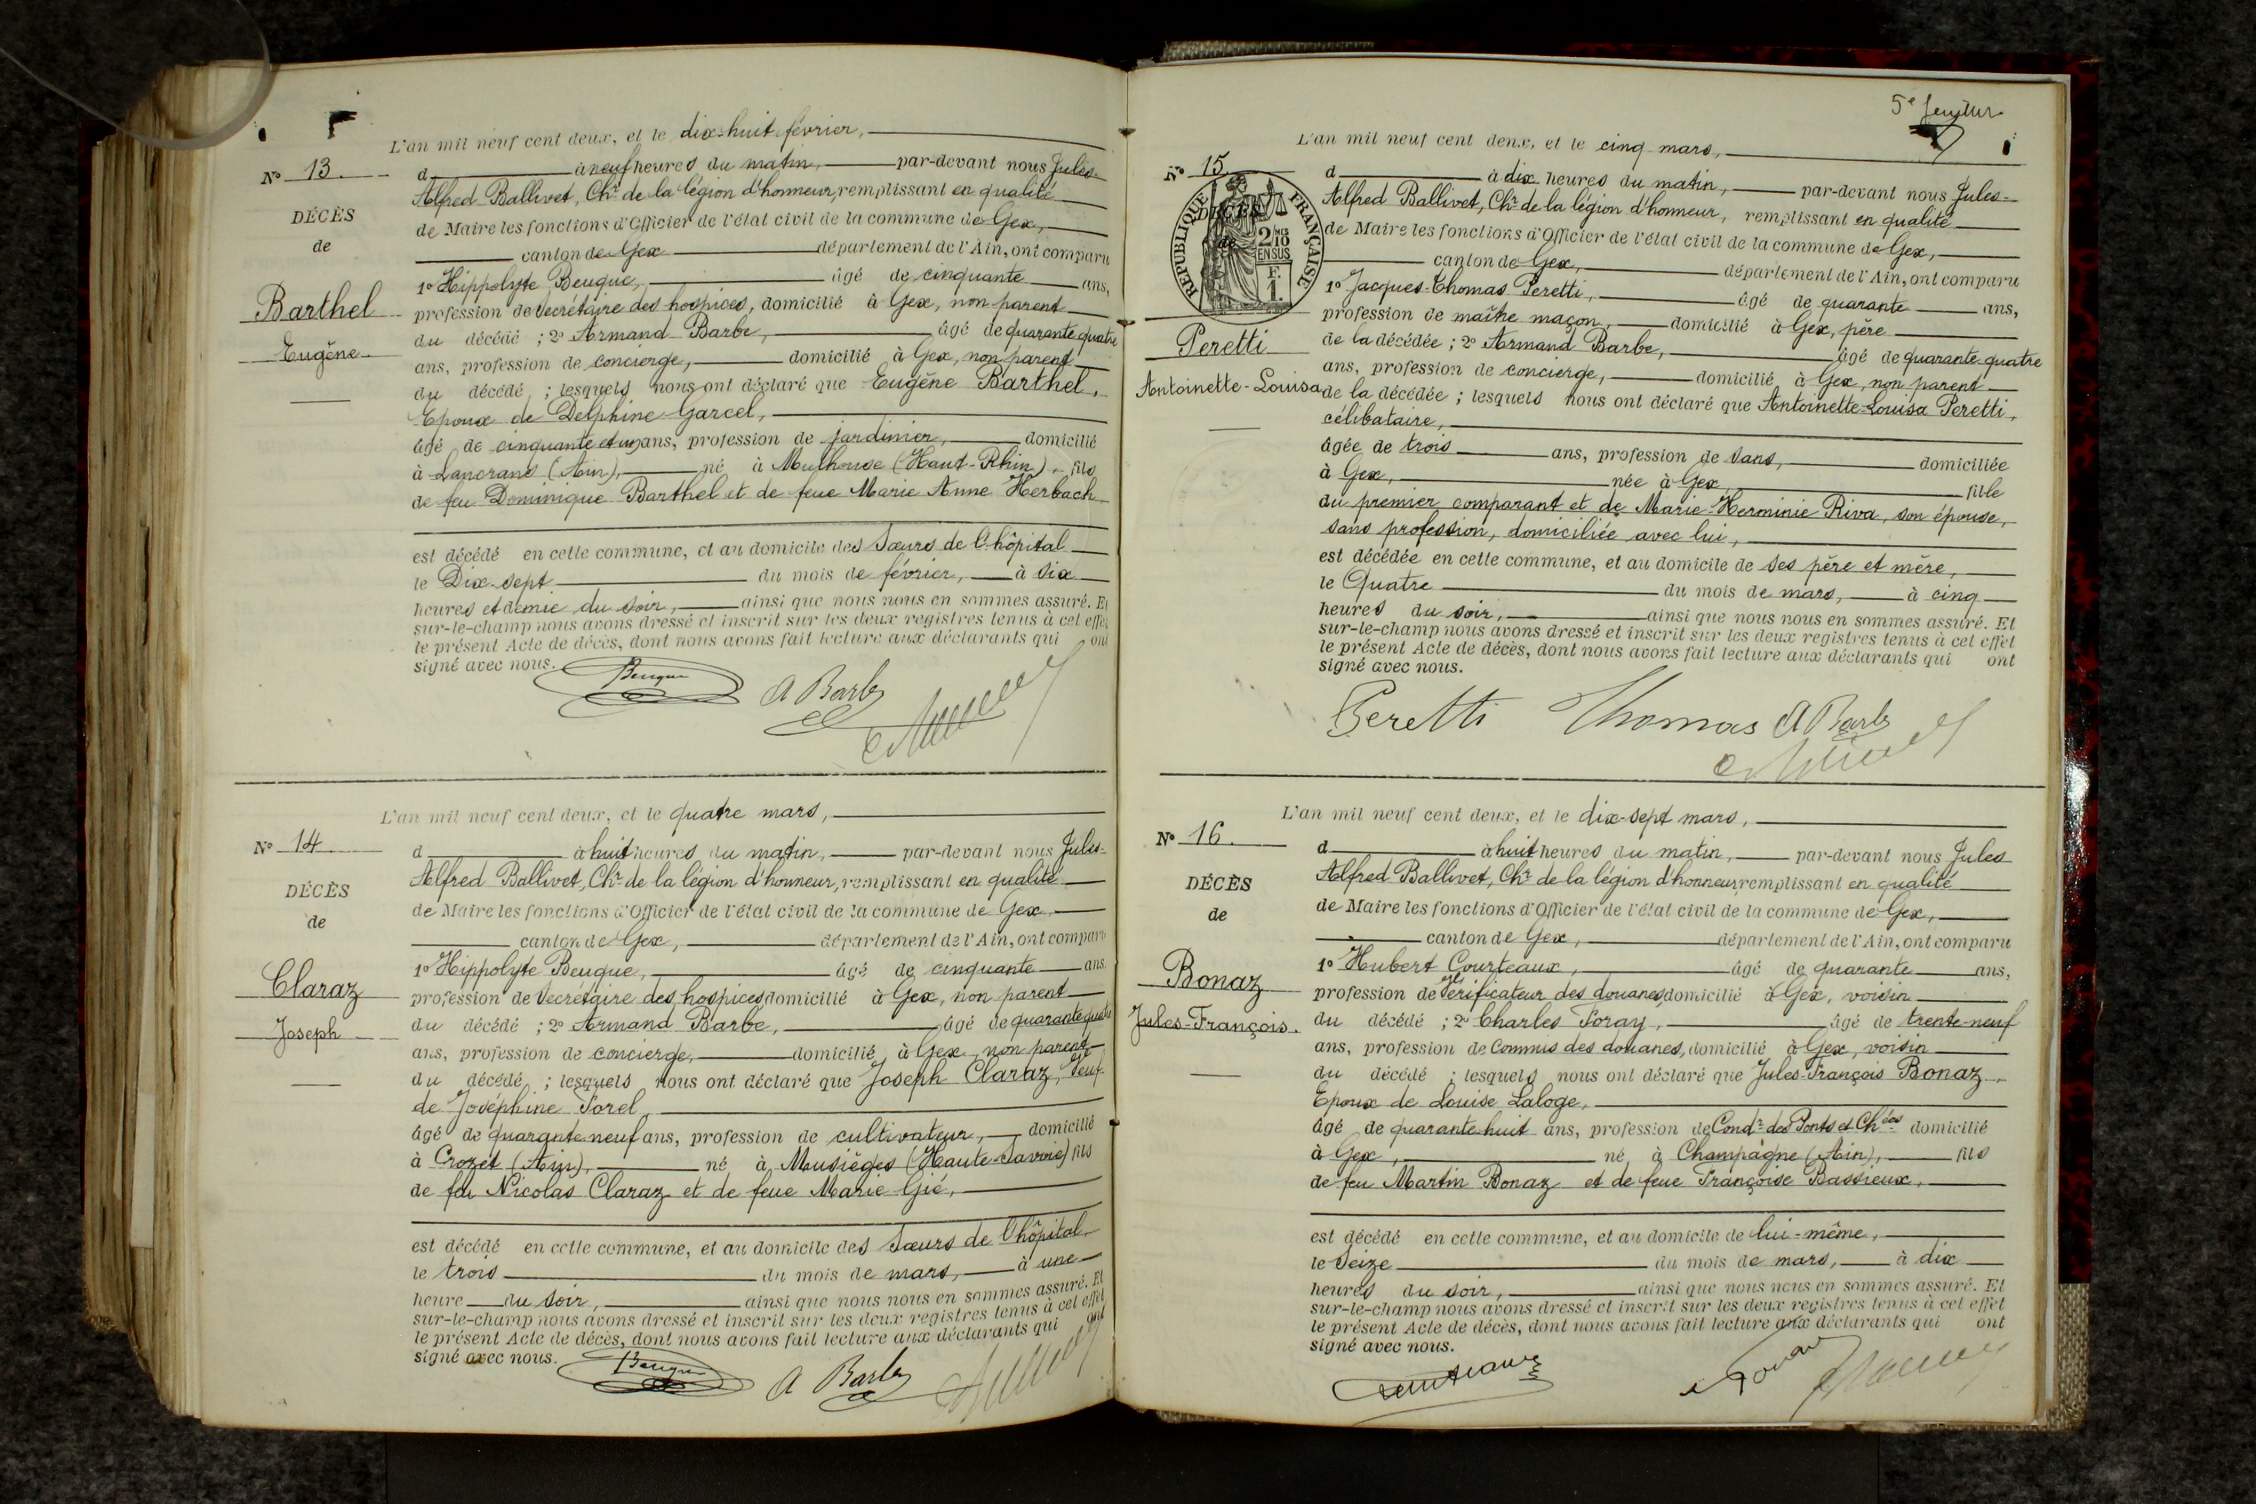 L'an mil neuf cent deux, et le dix-huit février,
N° 13.
d à neuf heures du matin, par-devant nous Jules-
Alfred Ballivet, Chr de la légion d'honneur, remplissant en qualité
DÉCÈS
de Maire les fonctions d'Officier de l'état civil de la commune de Gex,
de
canton de Gex département de l'Ain, ont comparu
1° Hippolyte Beuque, âgé de cinquante ans,
Barthel
profession de Secrétaire des hospices, domicilié à Gex, non parent
du décédé ; 2° Armand Barbe, âgé de quarante quatre
Eugène
ans, profession de concierge, domicilié à Gex, non parent
du décédé ; lesquels nous ont déclaré que Eugène Barthel,
Epoux de Delphine Garcel,
âgé de cinquante et un ans, profession de jardinier, domicilié
à Lancrans (Ain), né à Mulhouse (Haut-Rhin), fils
de feu Dominique Barthel et de feue Marie Anne Herbach
est décédé en cette commune, et au domicile des Sœurs de l'hôpital
le Dix-sept du mois de février, à six
heures et demie du soir, ainsi que nous nous en sommes assuré. Et
sur-le-champ nous avons dressé et inscrit sur les deux registres tenus à cet effet
le présent Acte de décès, dont nous avons fait lecture aux déclarants qui ont
signé avec nous.
Beuque A Barbe
L'an mil neuf cent deux, et le quatre mars,
N° 14
d à huit heures du matin, par-devant nous Jules-
Alfred Ballivet, Chr de la légion d'honneur, remplissant en qualité
DÉCÈS
de Maire les fonctions d'Officier de l'état civil de la commune de Gex,
de
canton de Gex, département de l'Ain, ont comparu
1° Hippolyte Beuque, âgé de cinquante ans
Claraz
profession de Secrétaire des hospices, domicilié à Gex, non parent
du décédé ; 2° Armand Barbe, âgé de quarante quatre
Joseph
ans, profession de concierge, domicilié à Gex, non parent
du décédé ; lesquels nous ont déclaré que Joseph Claraz, Veuf
de Joséphine Sorel,
âgé de quarante-neuf ans, profession de cultivateur, domicilié
à Crozet (Ain), né à Musièges (Haute-Savoie) fils
de feu Nicolas Claraz et de feue Marie Gié,
est décédé en cette commune, et au domicile des Sœurs de l'hôpital
le trois du mois de mars, à une
heure du soir, ainsi que nous nous en sommes assuré. Et
sur-le-champ nous avons dressé et inscrit sur les deux registres tenus à cet effet
le présent Acte de décès, dont nous avons fait lecture aux déclarants qui ont
signé avec nous.
Beuque A Barbe
5e feuillet
L'an mil neuf cent deux, et le cinq mars,
N° 15.
d à dix heures du matin, par-devant nous Jules-
Alfred Ballivet, Chr de la légion d'honneur, remplissant en qualité
DÉCÈS
RÉPUBLIQUE FRANÇAISE
2/10 EN SUS
F. 1.
de Maire les fonctions d'Officier de l'état civil de la commune de Gex,
de
canton de Gex, département de l'Ain, ont comparu
1° Jacques-Thomas Peretti, âgé de quarante ans,
profession de maître maçon, domicilié à Gex, père
Peretti
de la décédée ; 2° Armand Barbe, âgé de quarante-quatre
ans, profession de concierge, domicilié à Gex, non parent
Antoinette-Louisa
de la décédée ; lesquels nous ont déclaré que Antoinette-Louisa Peretti,
célibataire,
âgée de trois ans, profession de sans, domiciliée
à Gex, née à Gex, fille
du premier comparant et de Marie-Herminie Riva, son épouse,
sans profession, domiciliée avec lui,
est décédée en cette commune, et au domicile de ses père et mère,
le Quatre du mois de mars, à cinq
heures du soir, ainsi que nous nous en sommes assuré. Et
sur-le-champ nous avons dressé et inscrit sur les deux registres tenus à cet effet
le présent Acte de décès, dont nous avons fait lecture aux déclarants qui ont
signé avec nous.
Peretti Thomas A Barbe
L'an mil neuf cent deux, et le dix-sept mars,
N° 16.
d à huit heures du matin, par-devant nous Jules
Alfred Ballivet, Chr de la légion d'honneur, remplissant en qualité
DÉCÈS
de Maire les fonctions d'Officier de l'état civil de la commune de Gex,
de
canton de Gex, département de l'Ain, ont comparu
1° Hubert Courteaux, âgé de quarante ans,
Bonaz
profession de Vérificateur des douanes, domicilié à Gex, voisin
Jules-François.
du décédé ; 2° Charles Foray, âgé de trente-neuf
ans, profession de Commis des douanes, domicilié à Gex, voisin
du décédé ; lesquels nous ont déclaré que Jules-François Bonaz,
Epoux de Louise Laloge,
âgé de quarante-huit ans, profession de Condr des Ponts et Chées domicilié
à Gex, né à Champagne (Ain), fils
de feu Martin Bonaz et de feue Françoise Bassieux,
est décédé en cette commune, et au domicile de lui-même,
le Seize du mois de mars, à dix
heures du soir, ainsi que nous nous en sommes assuré. Et
sur-le-champ nous avons dressé et inscrit sur les deux registres tenus à cet effet
le présent Acte de décès, dont nous avons fait lecture aux déclarants qui ont
signé avec nous.